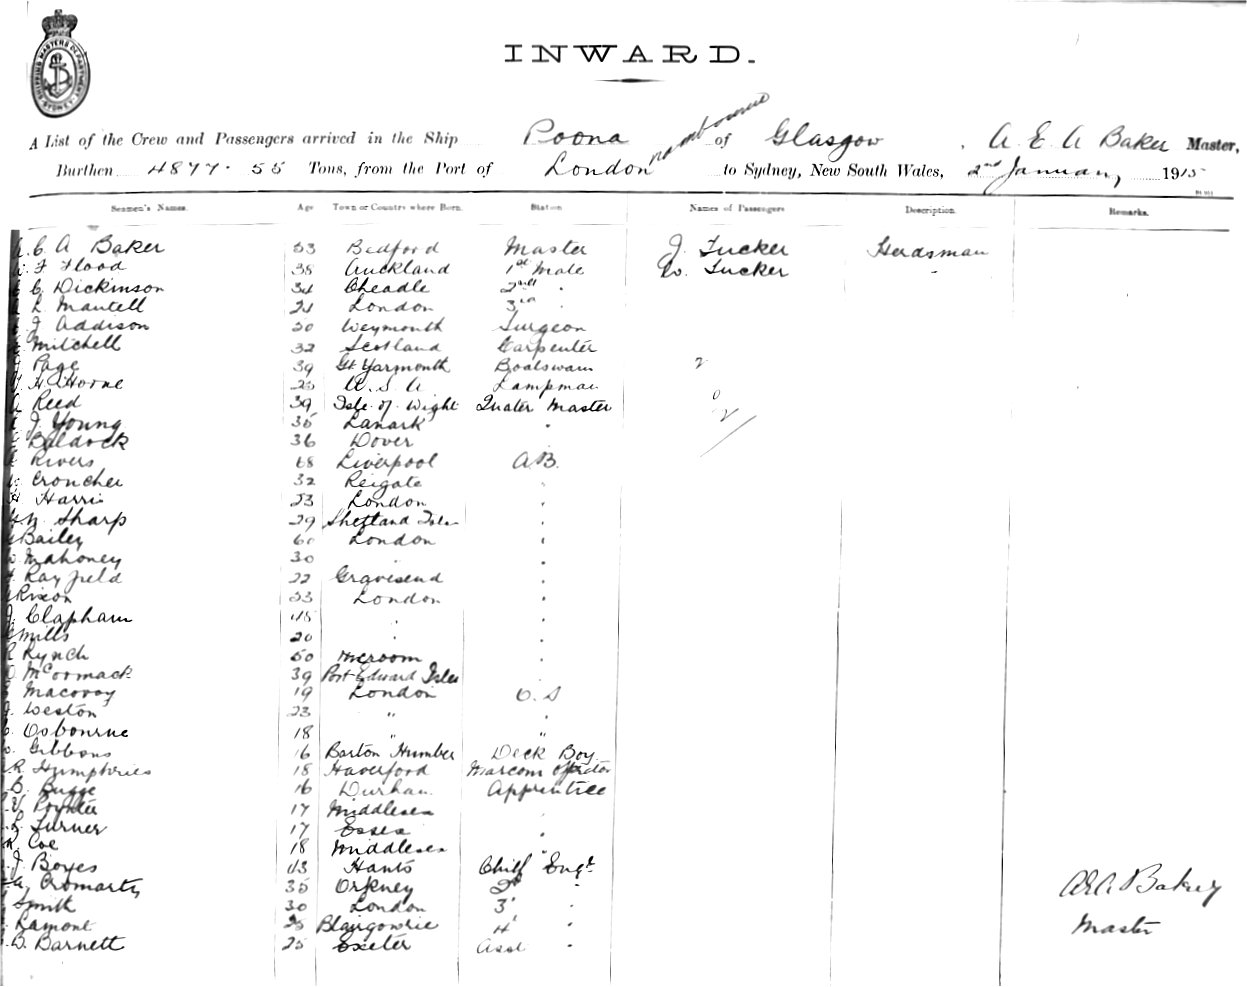 SHIPPING MASTERS DEPARTMENT SYDNEY
INWARD.
A List of the Crew and Passengers arrived in the Ship Poona of Glasgow, A E A Baker Master,
Burthen 4877.55 Tons, from the Port of London to Sydney, New South Wales, 2nd January 1915
Seamen's Names. Age Town or Country where Born. Station Names of Passengers Description. Remarks.
A. E. A Baker 53 Bedford Master J. Tucker Herdsman
F Flood 38 Auckland 1st Mate W. Tucker "
C. Dickinson 34 Cheadle 2nd "
L. Mantell 24 London 3rd "
J Addison 50 Weymouth Surgeon
Mitchell 32 Scotland Carpenter
Page 39 Gt Yarmouth Boatswain 2
H. Horne 25 U. S. A. Lampman 0
A Reed 39 Isle of Wight Quater Master 2
J. Young 35 Lanark "
Baldock 36 Dover
Rivers 68 Liverpool A.B.
Croucher 32 Reigate "
H Harris 23 London "
N. Sharp 29 Shetland Isles "
Bailey 60 London "
Mahoney 30 " "
Rayfield 22 Gravesend "
Rixon 33 London "
J. Clapham 45 " "
Mills 20 " "
R Kynch 50 "
McCormack 39 Port Edward Isles "
Macovoy 19 London O. S
J. Weston 23 " "
Osbourne 18 " "
Gibbons 16 Barton Humber Deck Boy
R. Humphries 18 Haverford Marconi Opretor
B. Bugge 16 Durham Apprentice
V. Poynter 17 Middlesex "
L. Turner 17 Essex "
Coe 18 Middlesex "
J. Boyes 43 Hants Chief Engr
Cromarty 35 Orkney 2d " A E A Baker
Smith 30 London 3 "
Lamont 25 Blairgowrie 4 " Master
D. Barnett 25 Exeter Asst "